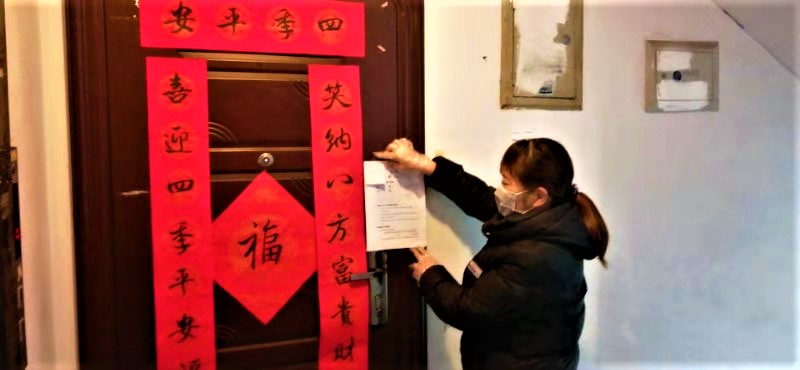 四季平安
笑纳八方富贵财
喜迎四季平安
福